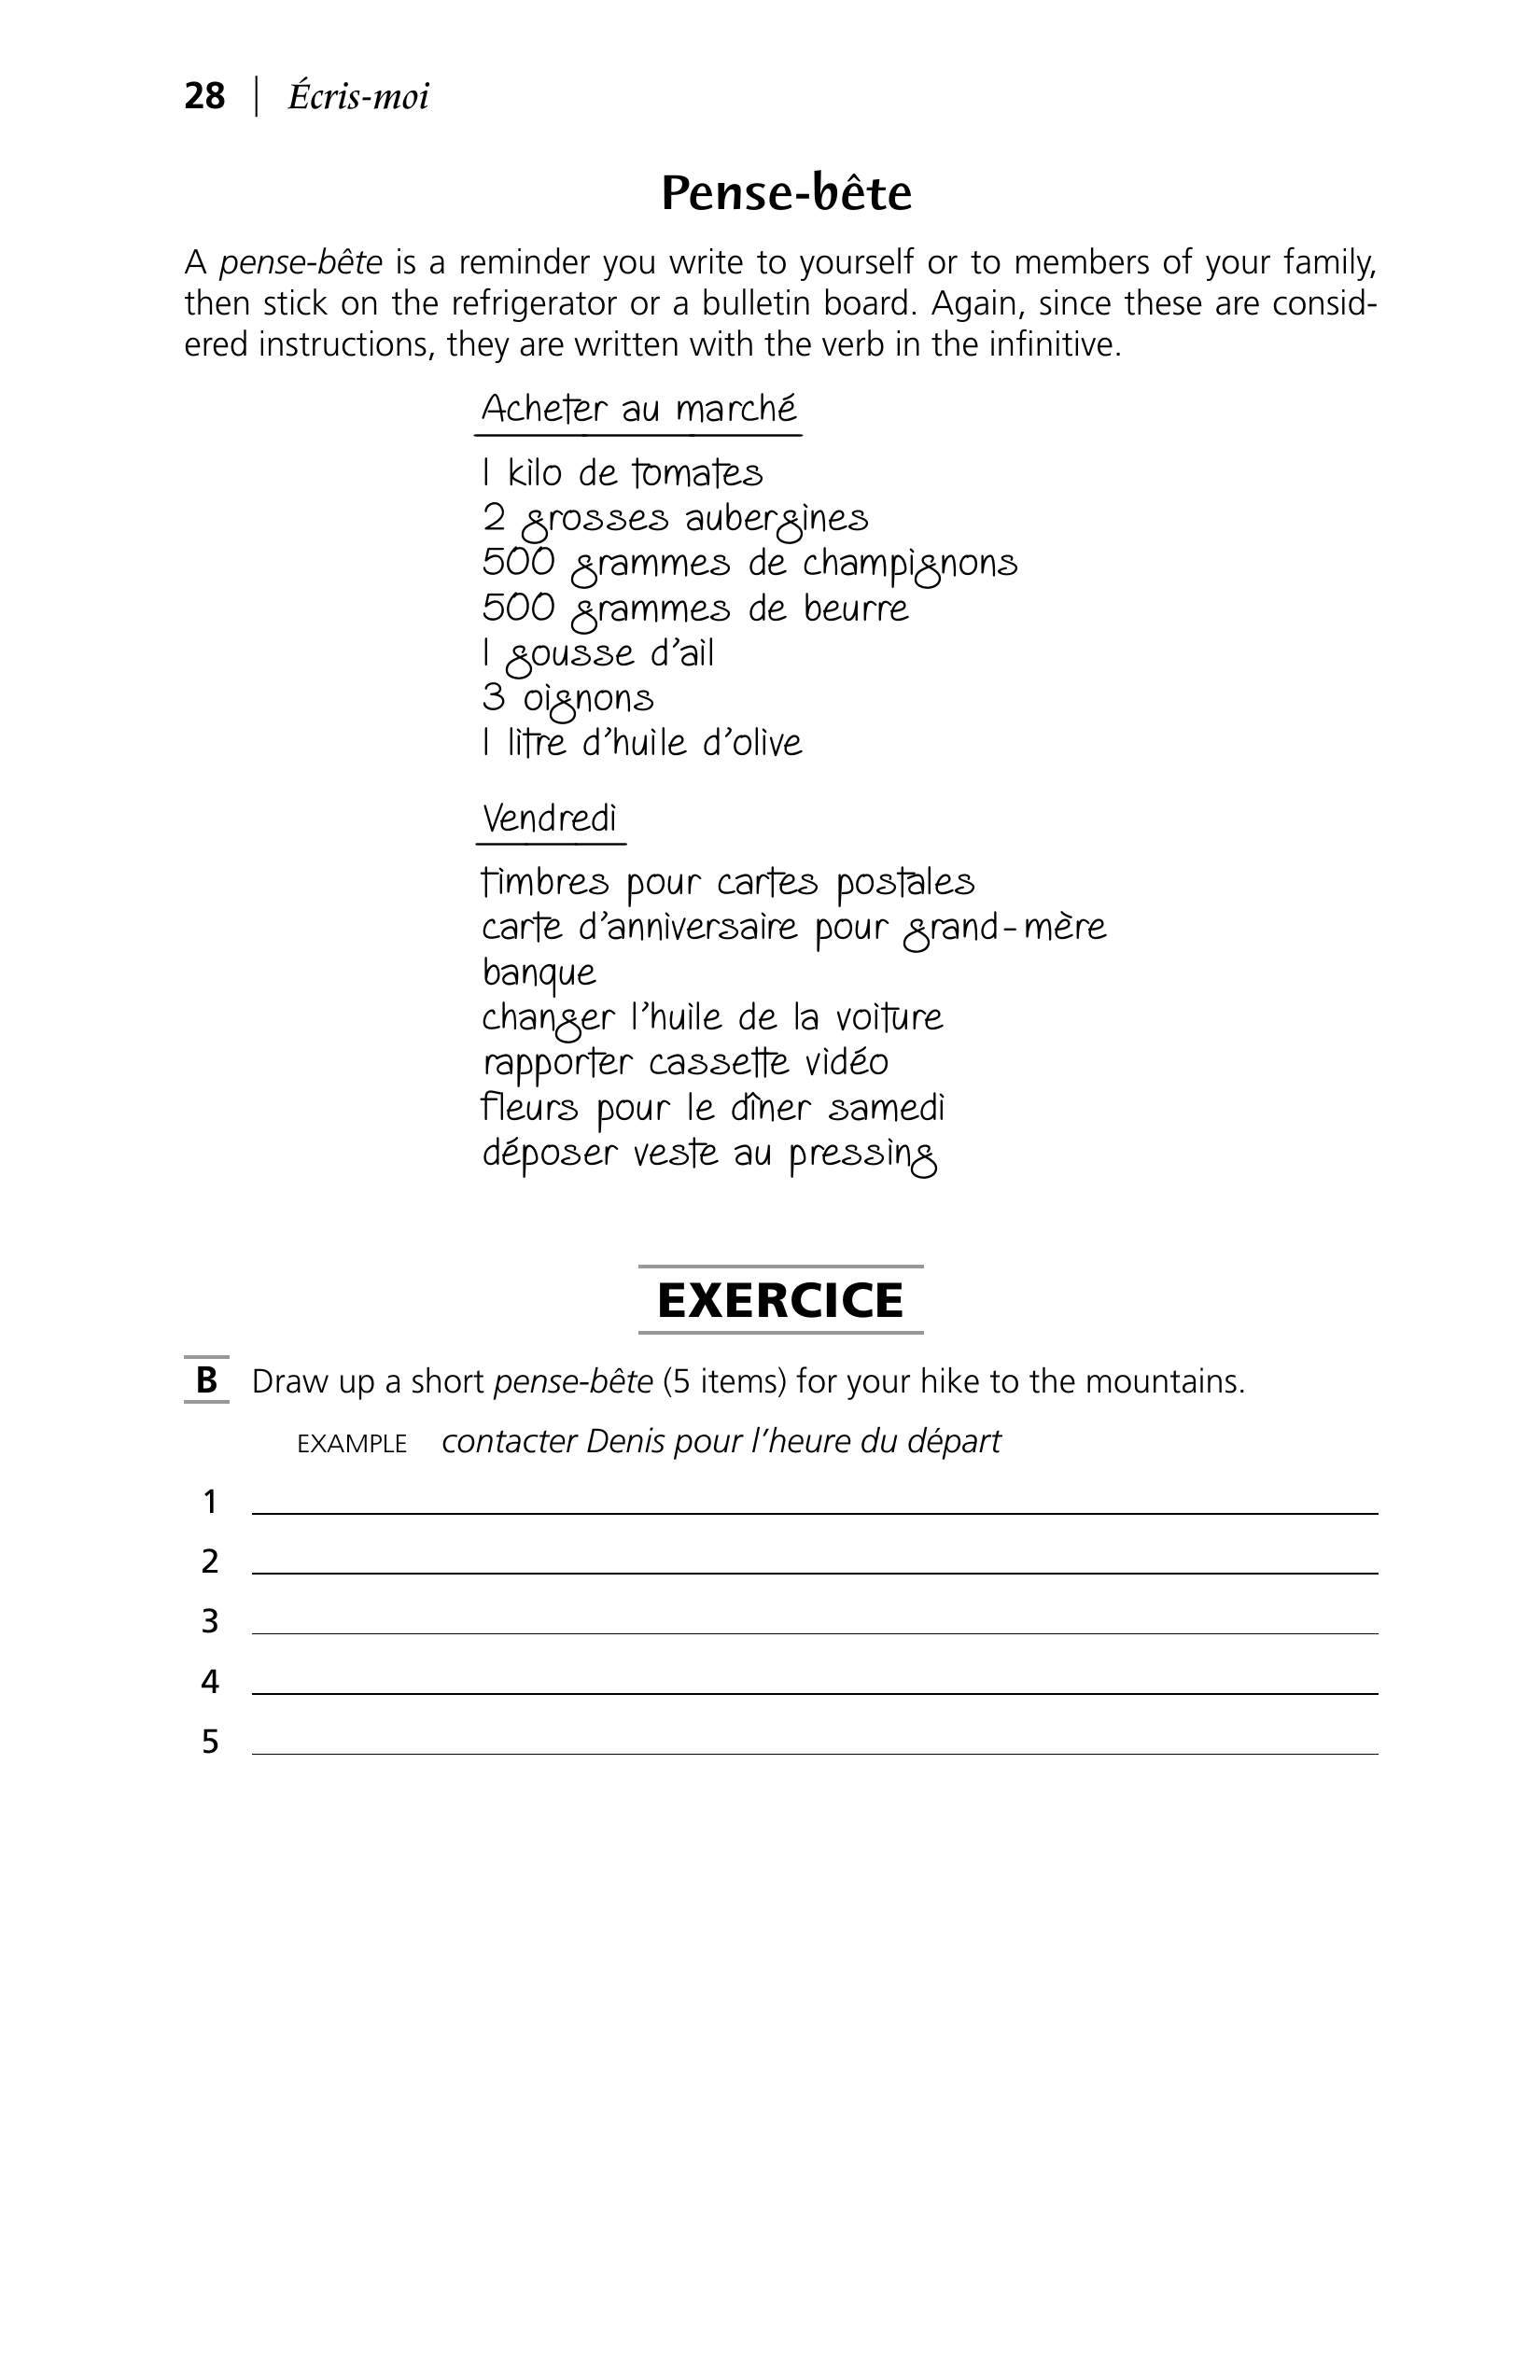 28 | Écris-moi
Pense-bête
A pense-bête is a reminder you write to yourself or to members of your family,
then stick on the refrigerator or a bulletin board. Again, since these are consid-
ered instructions, they are written with the verb in the infinitive.
Acheter au marché
1 kilo de tomates
2 grosses aubergines
500 grammes de champignons
500 grammes de beurre
1 gousse d’ail
3 oignons
1 litre d’huile d’olive
Vendredi
timbres pour cartes postales
carte d’anniversaire pour grand-mère
banque
changer l’huile de la voiture
rapporter cassette vidéo
fleurs pour le dîner samedi
déposer veste au pressing
EXERCICE
B Draw up a short pense-bête (5 items) for your hike to the mountains.
EXAMPLE contacter Denis pour l’heure du départ
1
2
3
4
5